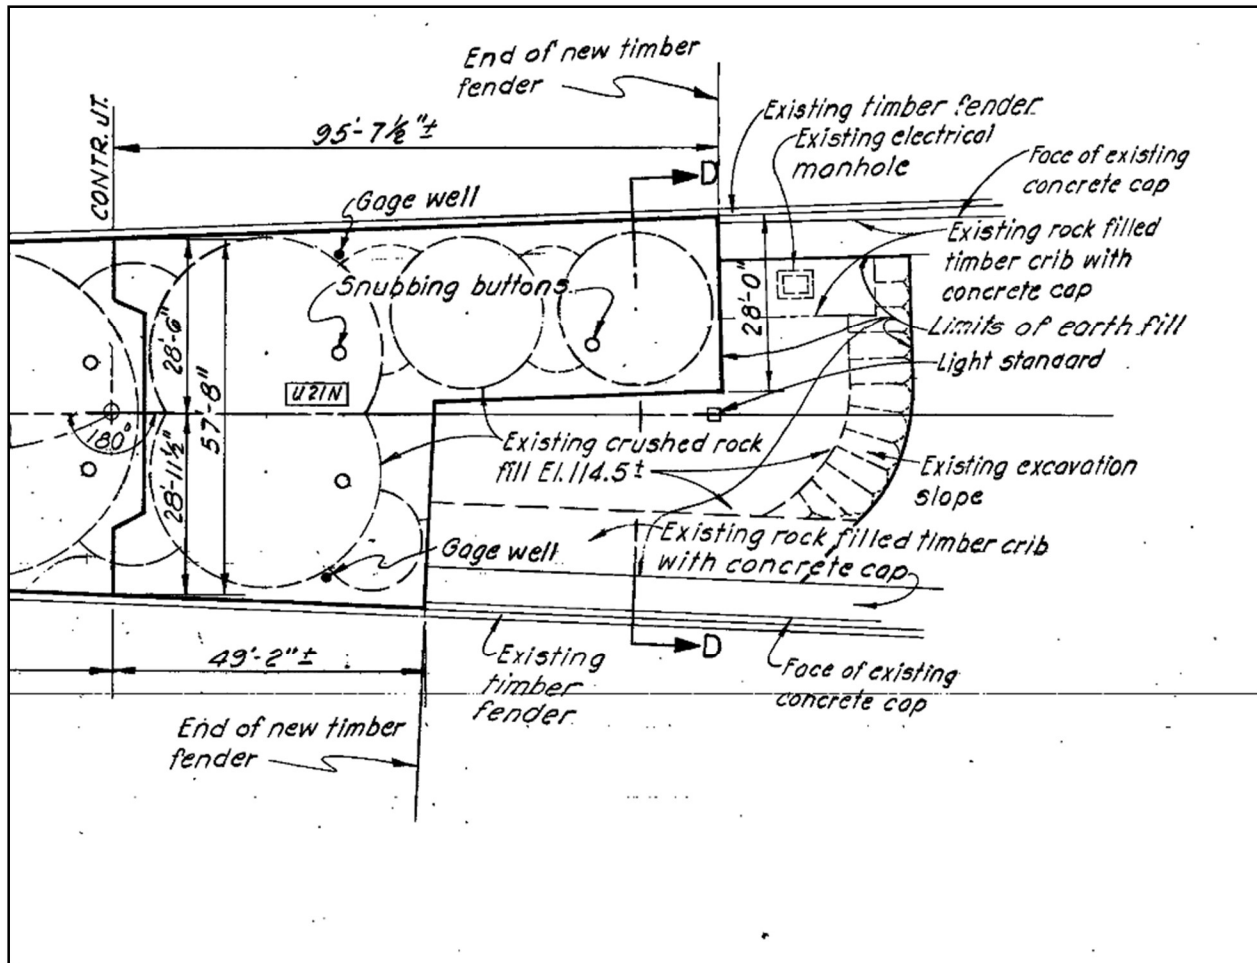 End of new timber
fender
CONTR. JT.
95'-7½"±
Existing timber fender
Existing electrical
manhole
Face of existing
concrete cap
D
Gage well
Existing rock filled
timber crib with
concrete cap
Snubbing buttons
28'-6"
28'-0"
Limits of earth fill
Light standard
57'-8"
U21N
180°
28'-11½"
Existing crushed rock
fill El. 114.5±
Existing excavation
slope
Existing rock filled timber crib
with concrete cap
Gage well
D
49'-2"±
Existing
timber
fender
Face of existing
concrete cap
End of new timber
fender